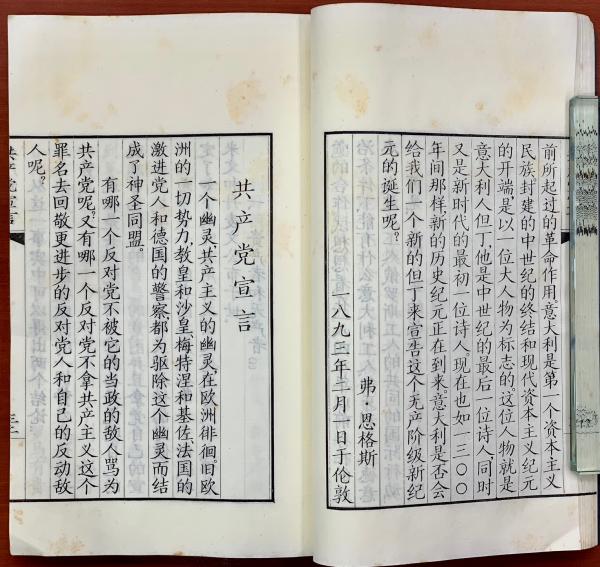 前所起过的革命作用。意大利是第一个资本主义
民族。封建的中世纪的终结和现代资本主义纪元
的开端,是以一位大人物为标志的。这位人物就是
意大利人但丁,他是中世纪的最后一位诗人,同时
又是新时代的最初一位诗人。现在也如一三〇〇
年间那样,新的历史纪元正在到来。意大利是否会
给我们一个新的但丁来宣告这个无产阶级新纪
元的诞生呢?
弗·恩格斯
一八九三年二月一日于伦敦
共产党宣言
一个幽灵,共产主义的幽灵,在欧洲徘徊。旧欧
洲的一切势力,教皇和沙皇、梅特涅和基佐、法国的
激进党人和德国的警察,都为驱除这个幽灵而结
成了神圣同盟。
有哪一个反对党不被它的当政的敌人骂为
共产党呢?又有哪一个反对党不拿共产主义这个
罪名去回敬更进步的反对党人和自己的反动敌
人呢?
共产党宣言